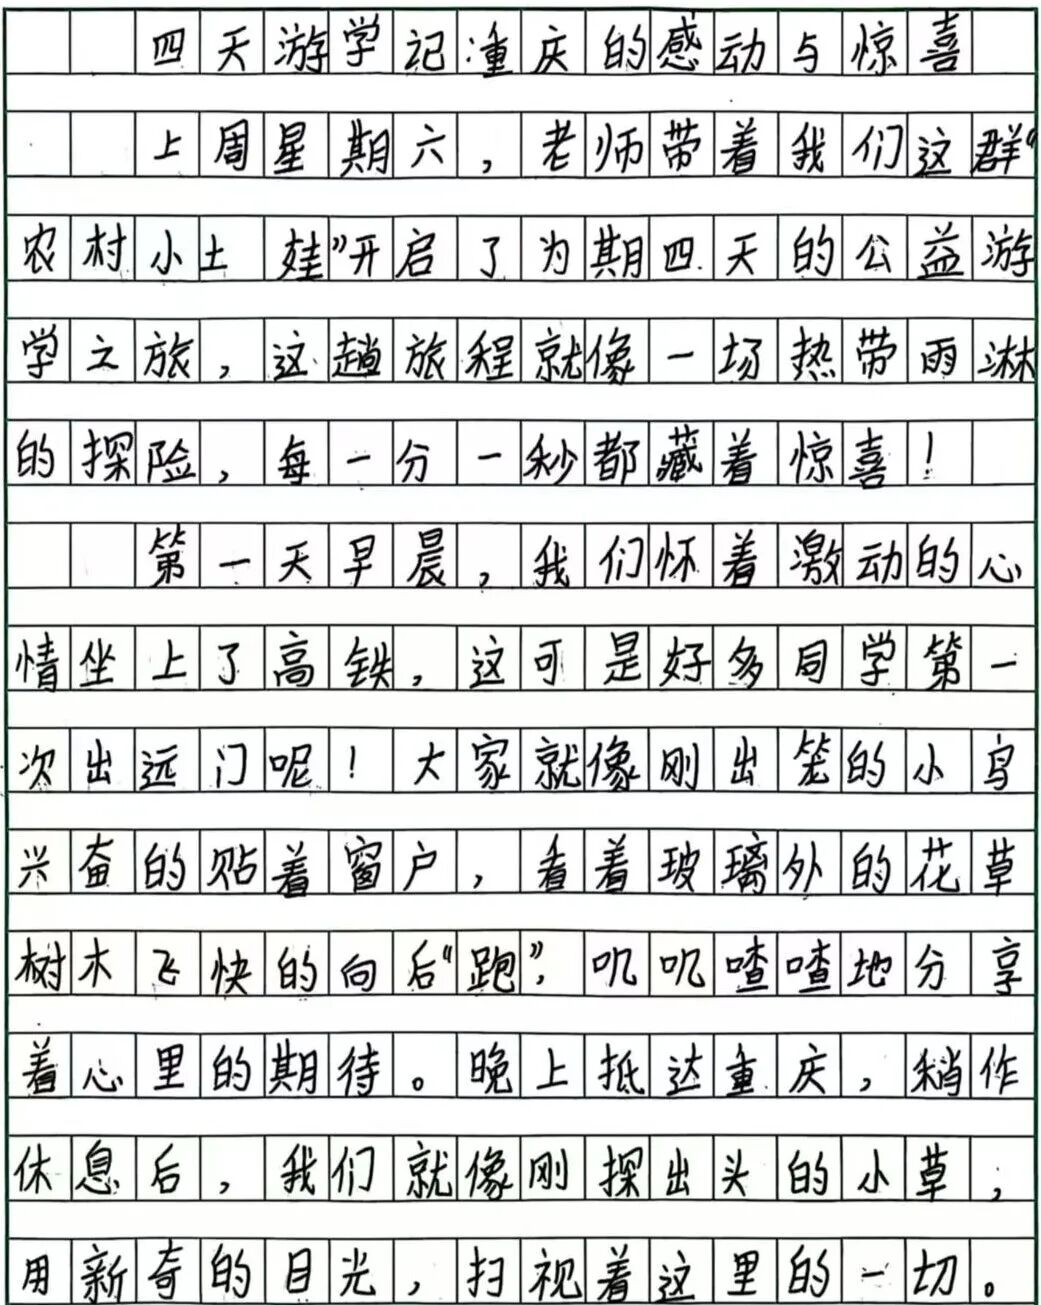 四天游学记:重庆的感动与惊喜
上周星期六，老师带着我们这群“
农村小土娃”开启了为期四天的公益游
学之旅，这趟旅程就像一场热带雨淋
的探险，每一分一秒都藏着惊喜！
第一天早晨，我们怀着激动的心
情坐上了高铁，这可是好多同学第一
次出远门呢！大家就像刚出笼的小鸟
兴奋的贴着窗户，看着玻璃外的花草
树木飞快的向后“跑”，叽叽喳喳地分享
着心里的期待。晚上抵达重庆，稍作
休息后，我们就像刚探出头的小草，
用新奇的目光，扫视着这里的一切。